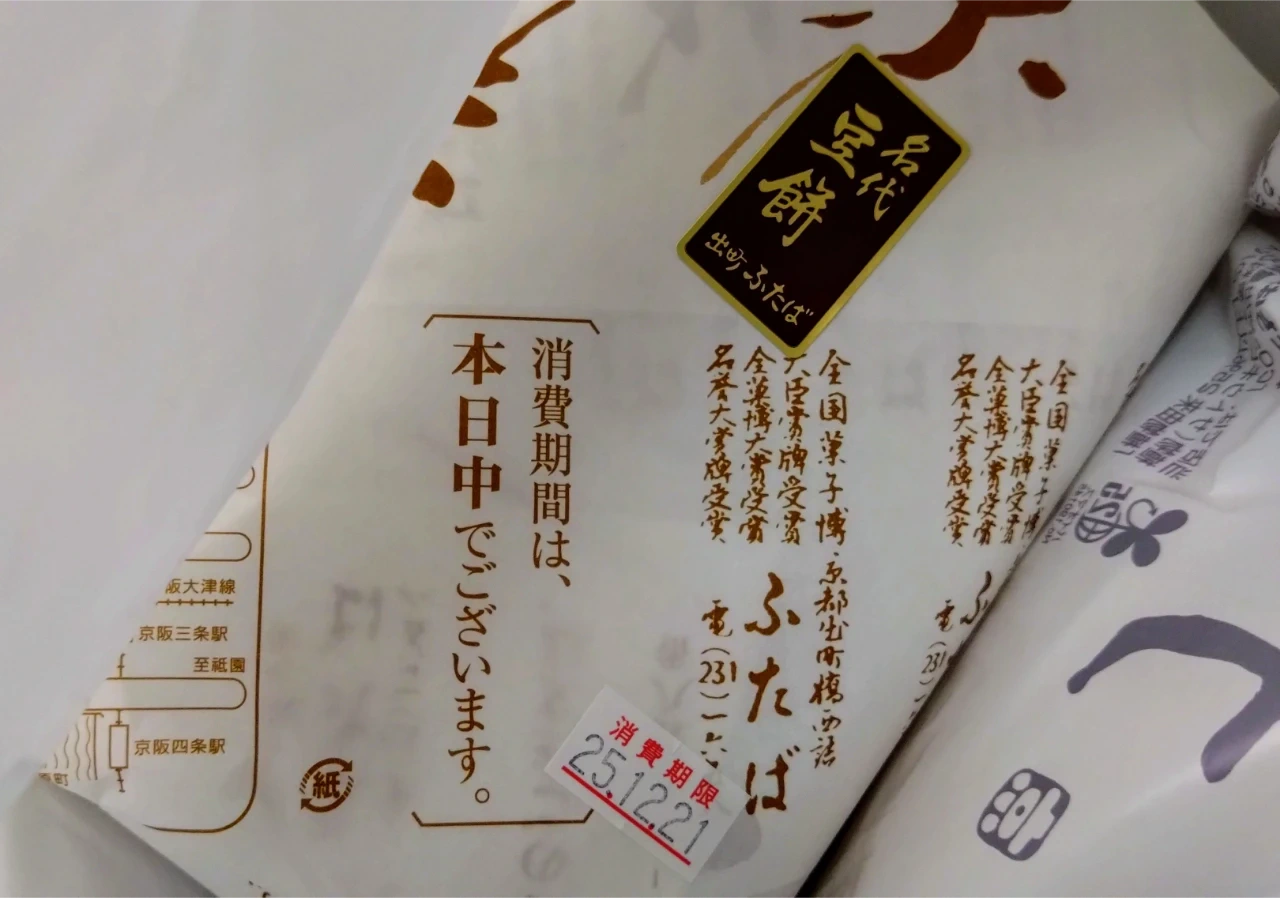 名代
豆餅
出町ふたば
全国菓子博
大臣賞牌受賞
全菓博大賞受賞
名誉大賞牌受賞
京都出町橋西詰
ふたば
電(231)一六
全国菓子
大臣賞牌受賞
全菓博大賞受賞
名誉大賞牌受賞
電(231)
消費期間は、
本日中でございます。
消費期限
25.12.21
阪大津線
京阪三条駅
至祇園
京阪四条駅
町
紙